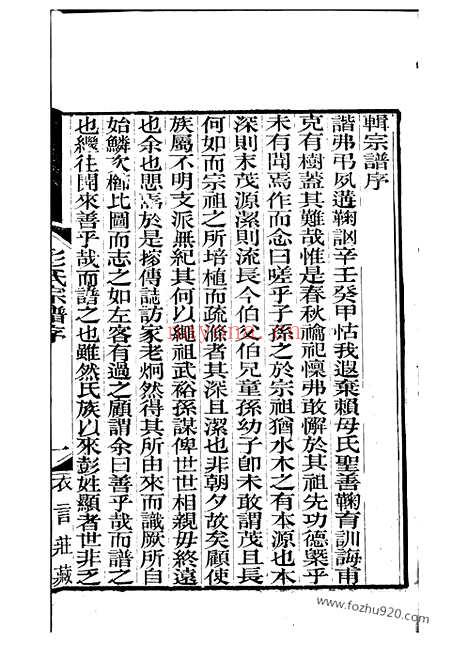 輯宗譜序
諧弗弔夙遘鞠訩辛壬癸甲怙我遐棄賴母氏聖善鞠育訓誨甫
克有樹蓋其難哉惟是春秋禴祀懍弗敢懈於其祖先功德槩乎
未有聞焉作而念曰嗟乎子孫之於宗祖猶水木之有本源也木
深則末茂源潔則流長今伯父伯兄童孫幼子卽未敢謂茂且長
何如而宗祖之所培植而疏滌者其深且潔也非朝夕故矣顧使
族屬不明支派無紀其何以繩祖武裕孫謀俾世世相親毋終遠
也余也慝焉於是搜傳誌訪家老炯然得其所由來而識厥所自
始鱗次櫛比圖而志之如左客有過之顧謂余曰善乎哉而譜之
也繼往開來善乎哉而譜之也雖然氏族以來彭姓顯者世非乏
彭氏宗譜序
一
衣言莊藏
mayona.cn
www.fozhu920.com